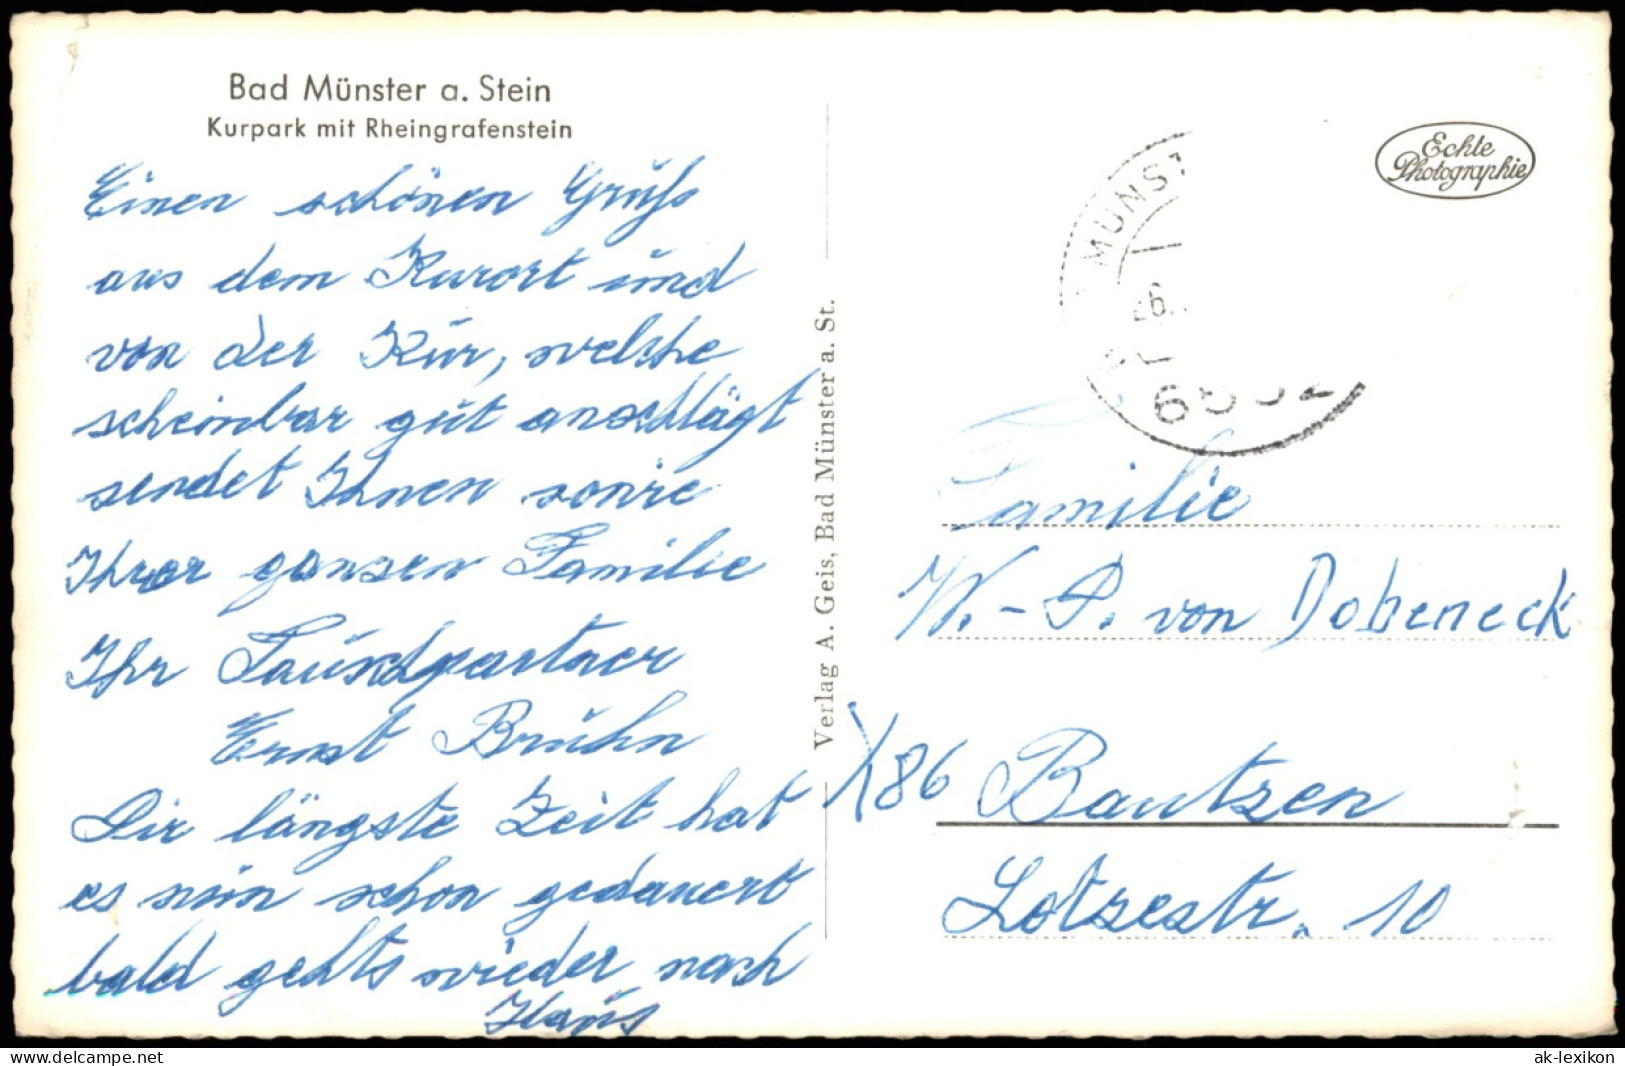 Bad Münster a. Stein
Kurpark mit Rheingrafenstein
Einen schönen Gruß
aus dem Kurort und
von der Kur, welche
scheinbar gut anschlägt
sendet Ihnen sowie
Ihrer ganzen Familie
Ihr Tauschpartner
Ernst Bruhn
Die längste Zeit hat
es nun schon gedauert
bald gehts wieder nach
Haus
Verlag A. Geis, Bad Münster a. St.
Echte
Photographie
MÜNST
6552
Familie
W.-P. von Dobeneck
X86 Bautzen
Lotzestr. 10
delcampe.net
ak-lexikon